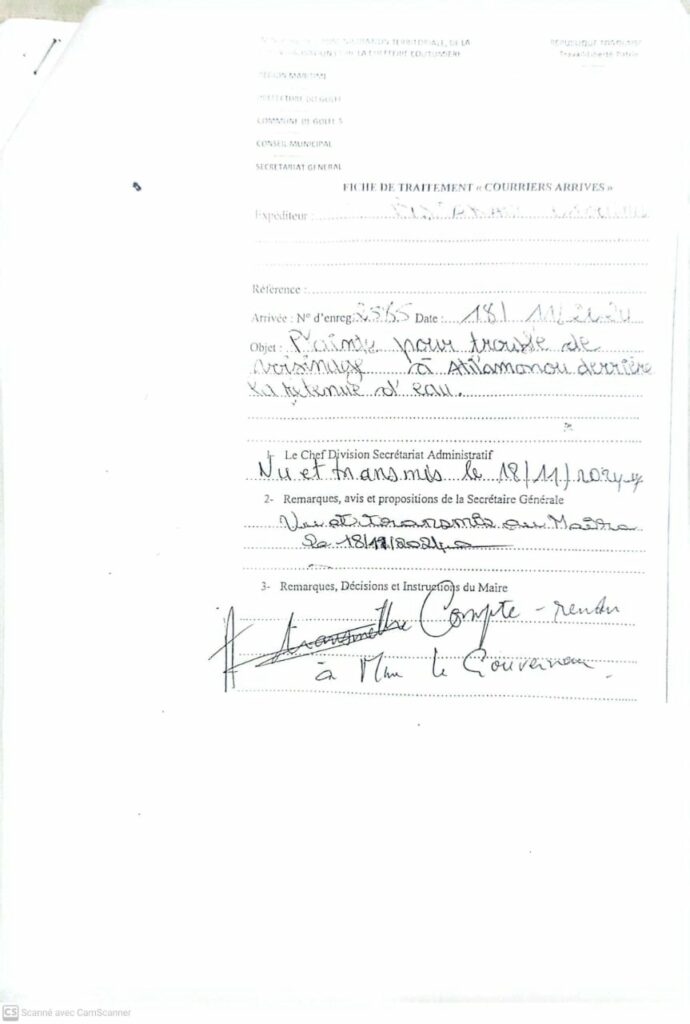 TERRITORIALE, DE LA
CHEFFERIE COUTUMIERE
Travail-Liberté-Patrie
REGION MARITIME
PREFECTURE DU GOLFE
COMMUNE DE GOLFE 5
CONSEIL MUNICIPAL
SECRETARIAT GENERAL
FICHE DE TRAITEMENT « COURRIERS ARRIVES »
Expéditeur :
Référence :
Arrivée : N° d'enreg. 2565 Date : 18/11/2024
Objet : Plainte pour trouble de
voisinage à Atilamonou derrière
la retenue d'eau.
1- Le Chef Division Secrétariat Administratif
Vu et transmis le 18/11/2024
2- Remarques, avis et propositions de la Secrétaire Générale
Vu et transmis au Maire
le 18/11/2024
3- Remarques, Décisions et Instructions du Maire
transmettre Compte-rendu
à Mme le Gouverneur.
CS Scanné avec CamScanner